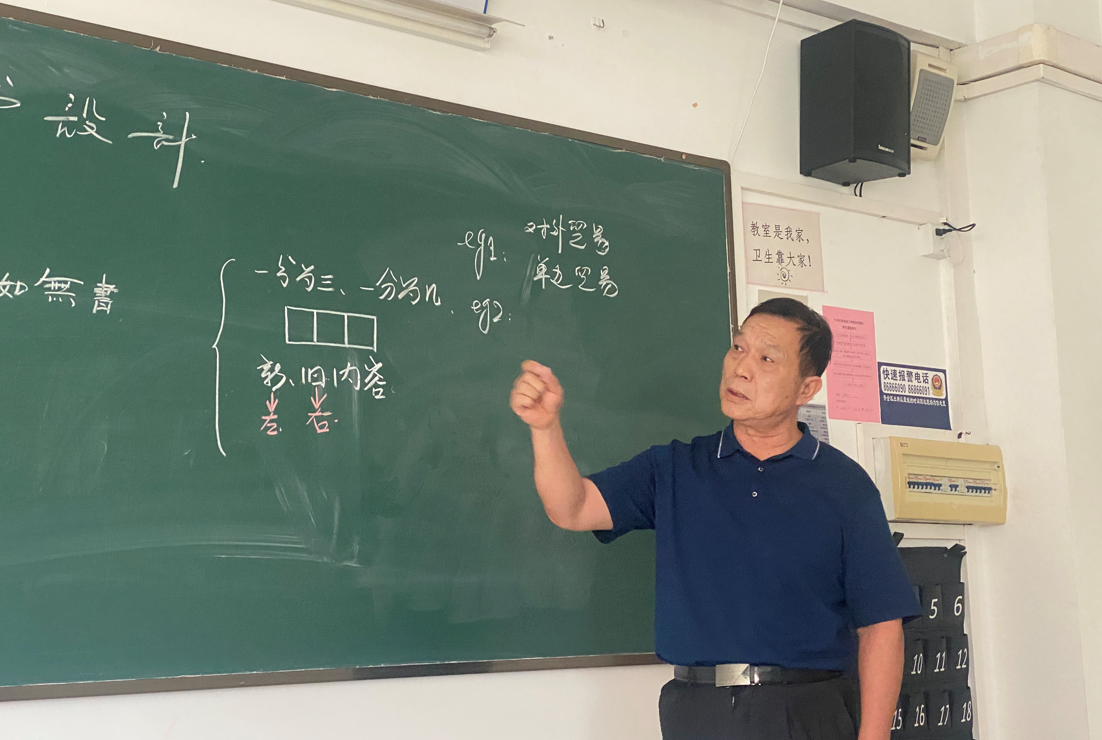 設計.
如無書
一分为三、一分为几.
新、旧内容.
左.
右.
eg1:
对外贸易
单边贸易
eg2:
教室是我家,
卫生靠大家!
快速报警电话
86866090 86866091
5 6
10 11 12
15 16 17 18